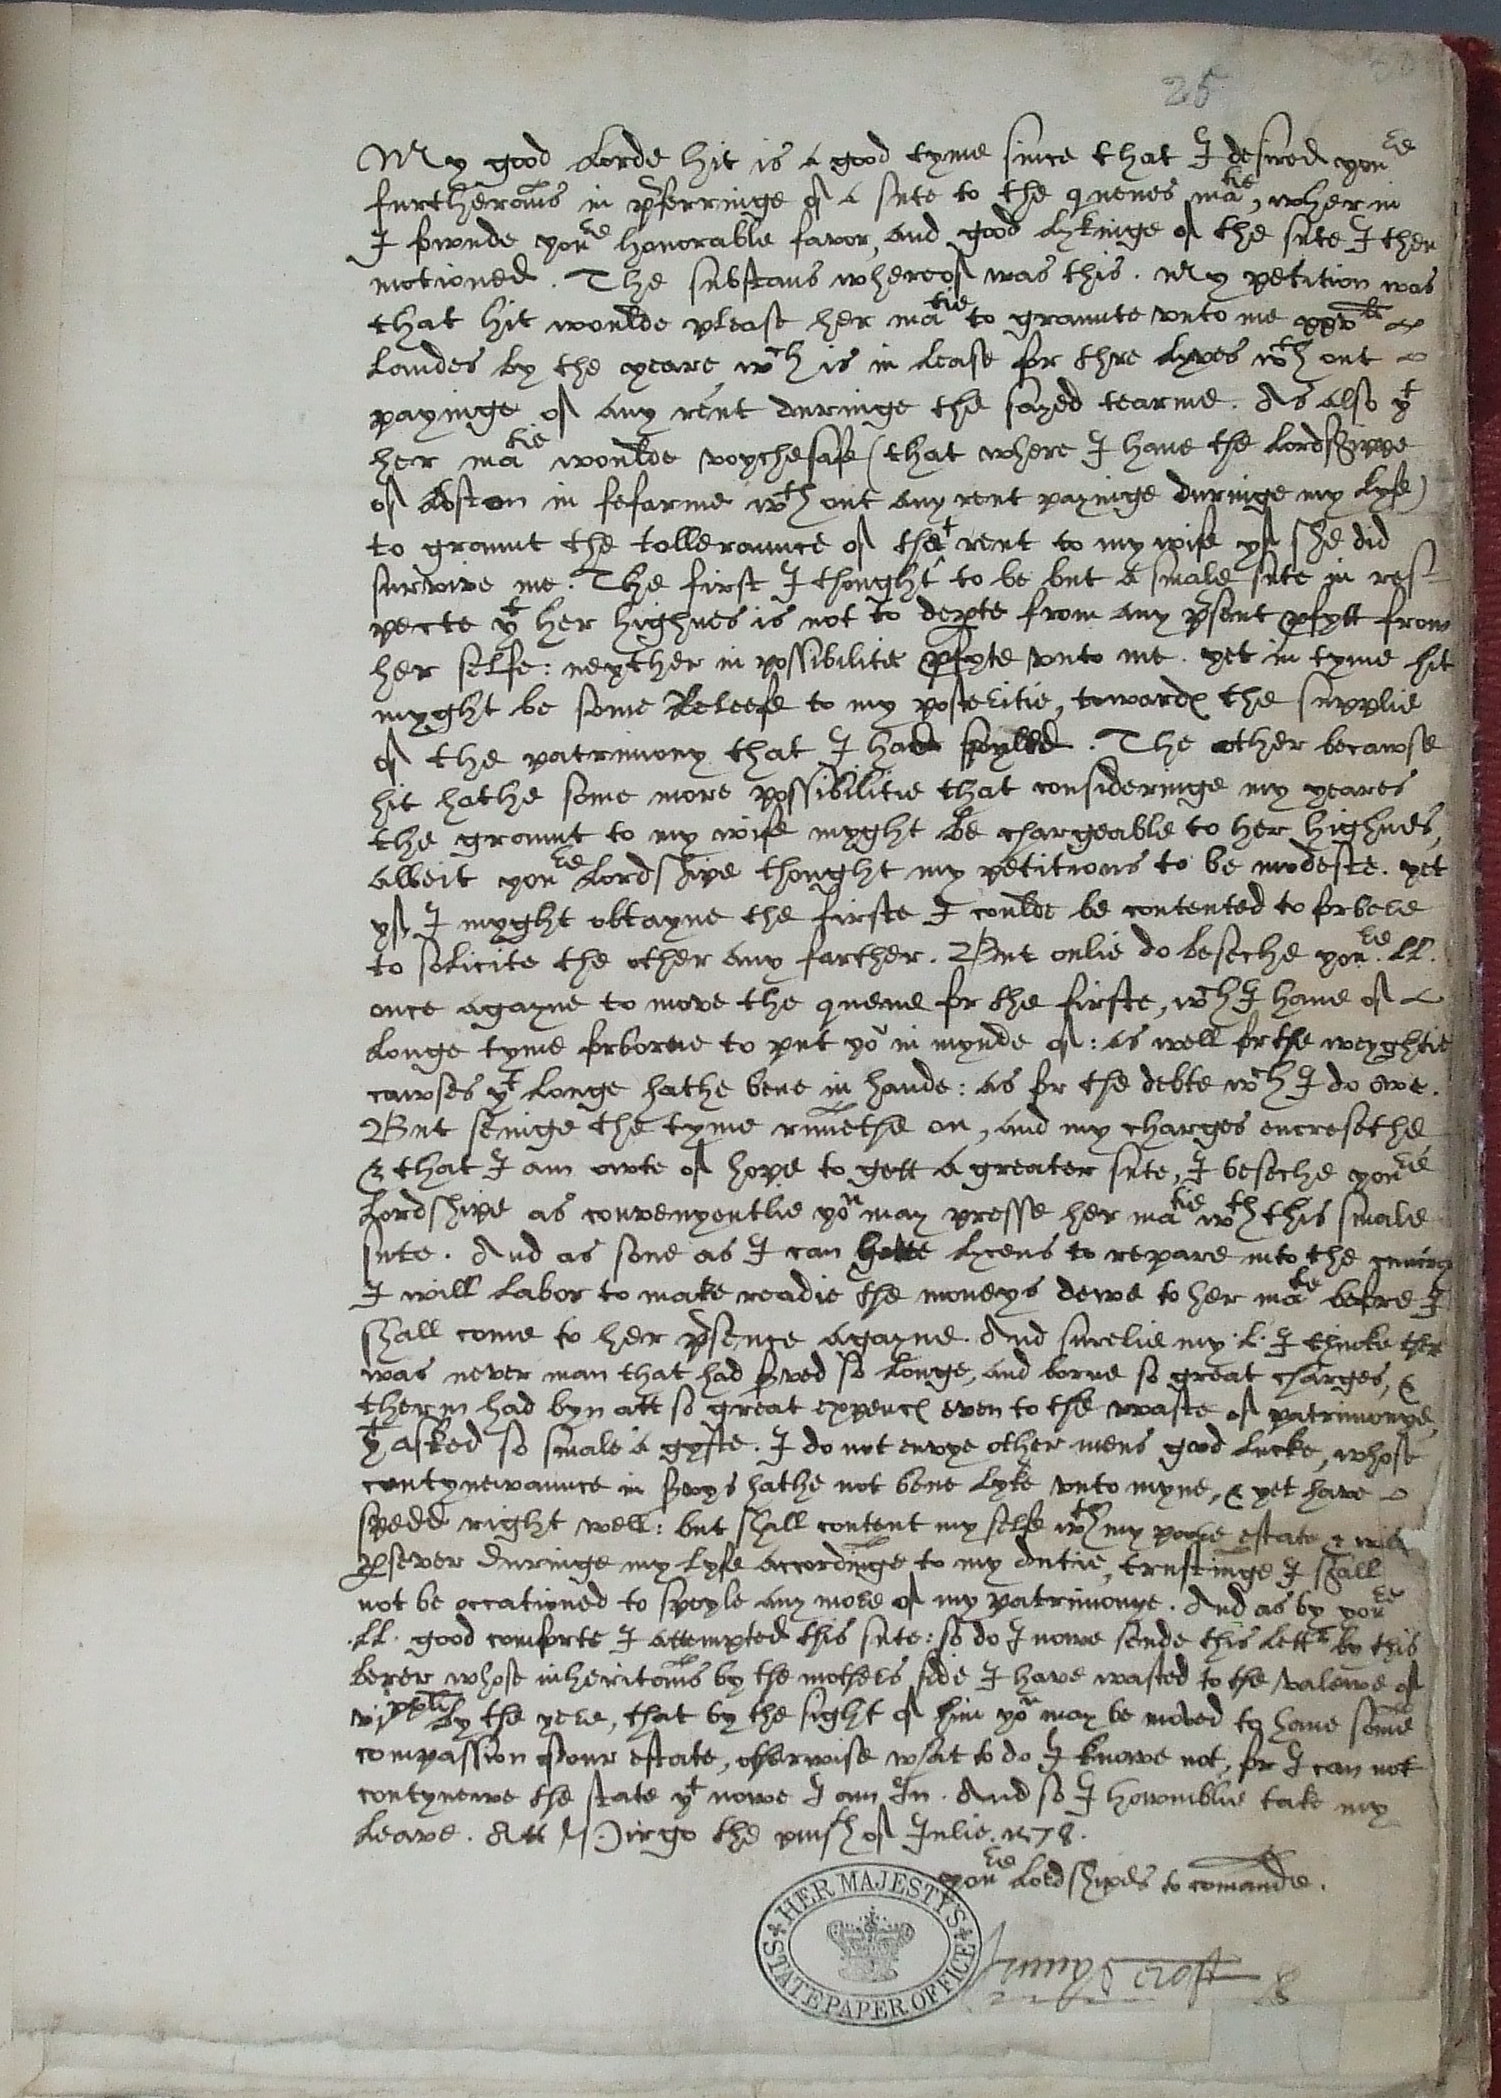 25
My good Lorde hit is a good tyme since that I desired youre
furtheraūs in p̄ferringe of a sute to the quenes matie, wherin
I fownde youre honorable favor, and good lykinge of the sute I then
motioned. The substans whereof was this. My petition was
that hit woulde please her matie to graunte vnto me
Landes by the yeare wch is in lease for thre lyves wthout
payinge of any rent duringe the sayed tearme. As also yt
her matie woulde voychesafe (that where I haue the Lordshippe
of Aston in fefarme wthout any rent payinge duringe my lyfe)
to graunt the tolleraunce of that rent to my wife yf she did
survive me. The first I thought to be but a smale sute in res-
pecte yt her highnes is not to dep̱te from any p̄sent p̱fytt from
her selfe: neyther in possibilitie p̱fyte vnto me. yet in tyme hit
myght be some Releefe to my posteritie, towardes the supplie
of the patrimony that I have spoyled. The other becawse
hit hathe some more possibilitie that consideringe my yeares
the graunt to my wife myght be chargeable to her highnes,
albeit youre Lordshipe thought my petitions to be modeste. yet
yf I myght obtayne the firste I coulde be contented to forbere
to solicite the other any farther. But onlie do beseche youre LL.
once agayne to move the quene for the firste, wch I haue of a
longe tyme forborne to put yow in mynde of: as well for the weyghtie
cawses yt longe hathe bene in hande: as for the debte wch I do owe.
But seinge the tyme runethe on, and my charges encresethe
& that I am owte of hope to gett a greater sute, I beseche youre
Lordshipe as convenyentlie you may presse her matie wth this smale
sute. And as sone as I can have lycens to repare into the cuntrey
I will labor to make readie the moneys dewe to her matie before I
shall come to her p̄sence agayne. And surelie my .L. I thincke ther
was never man that had s̱ved so longe, and borne so great charges, &
therin had byn att so great expences even to the waste of patrimonye
yt asked so smale a gyfte. I do not envye other mens good lucke, whose
contynewaunce in s̱vys hathe not bene lyke vnto myne, & yet have
spedd right well: but shall content my selfe wth my poore estate & will
p̱sever duringe my lyfe accordinge to my dutie, trustinge I shall
not be occationed to spoyle any more of my patrimonye. And as by youre
.LL. good comforte I attempted this sute: so do I nowe sende this lettr by this
berer whose inheritaūs by the mothers side I have wasted to the valewe of
by the yere, that by the sight of him you may be moved to haue some
compassion of our estate, otherwise what to do I knowe not, for I can not
contynewe the state yt nowe I am In. And so I howmblie take my
Leave. Att the xviijth of Julie. 1578.
youre Lordshipes to comande.
James Croft
HER MAJESTY'S STATE PAPER OFFICE